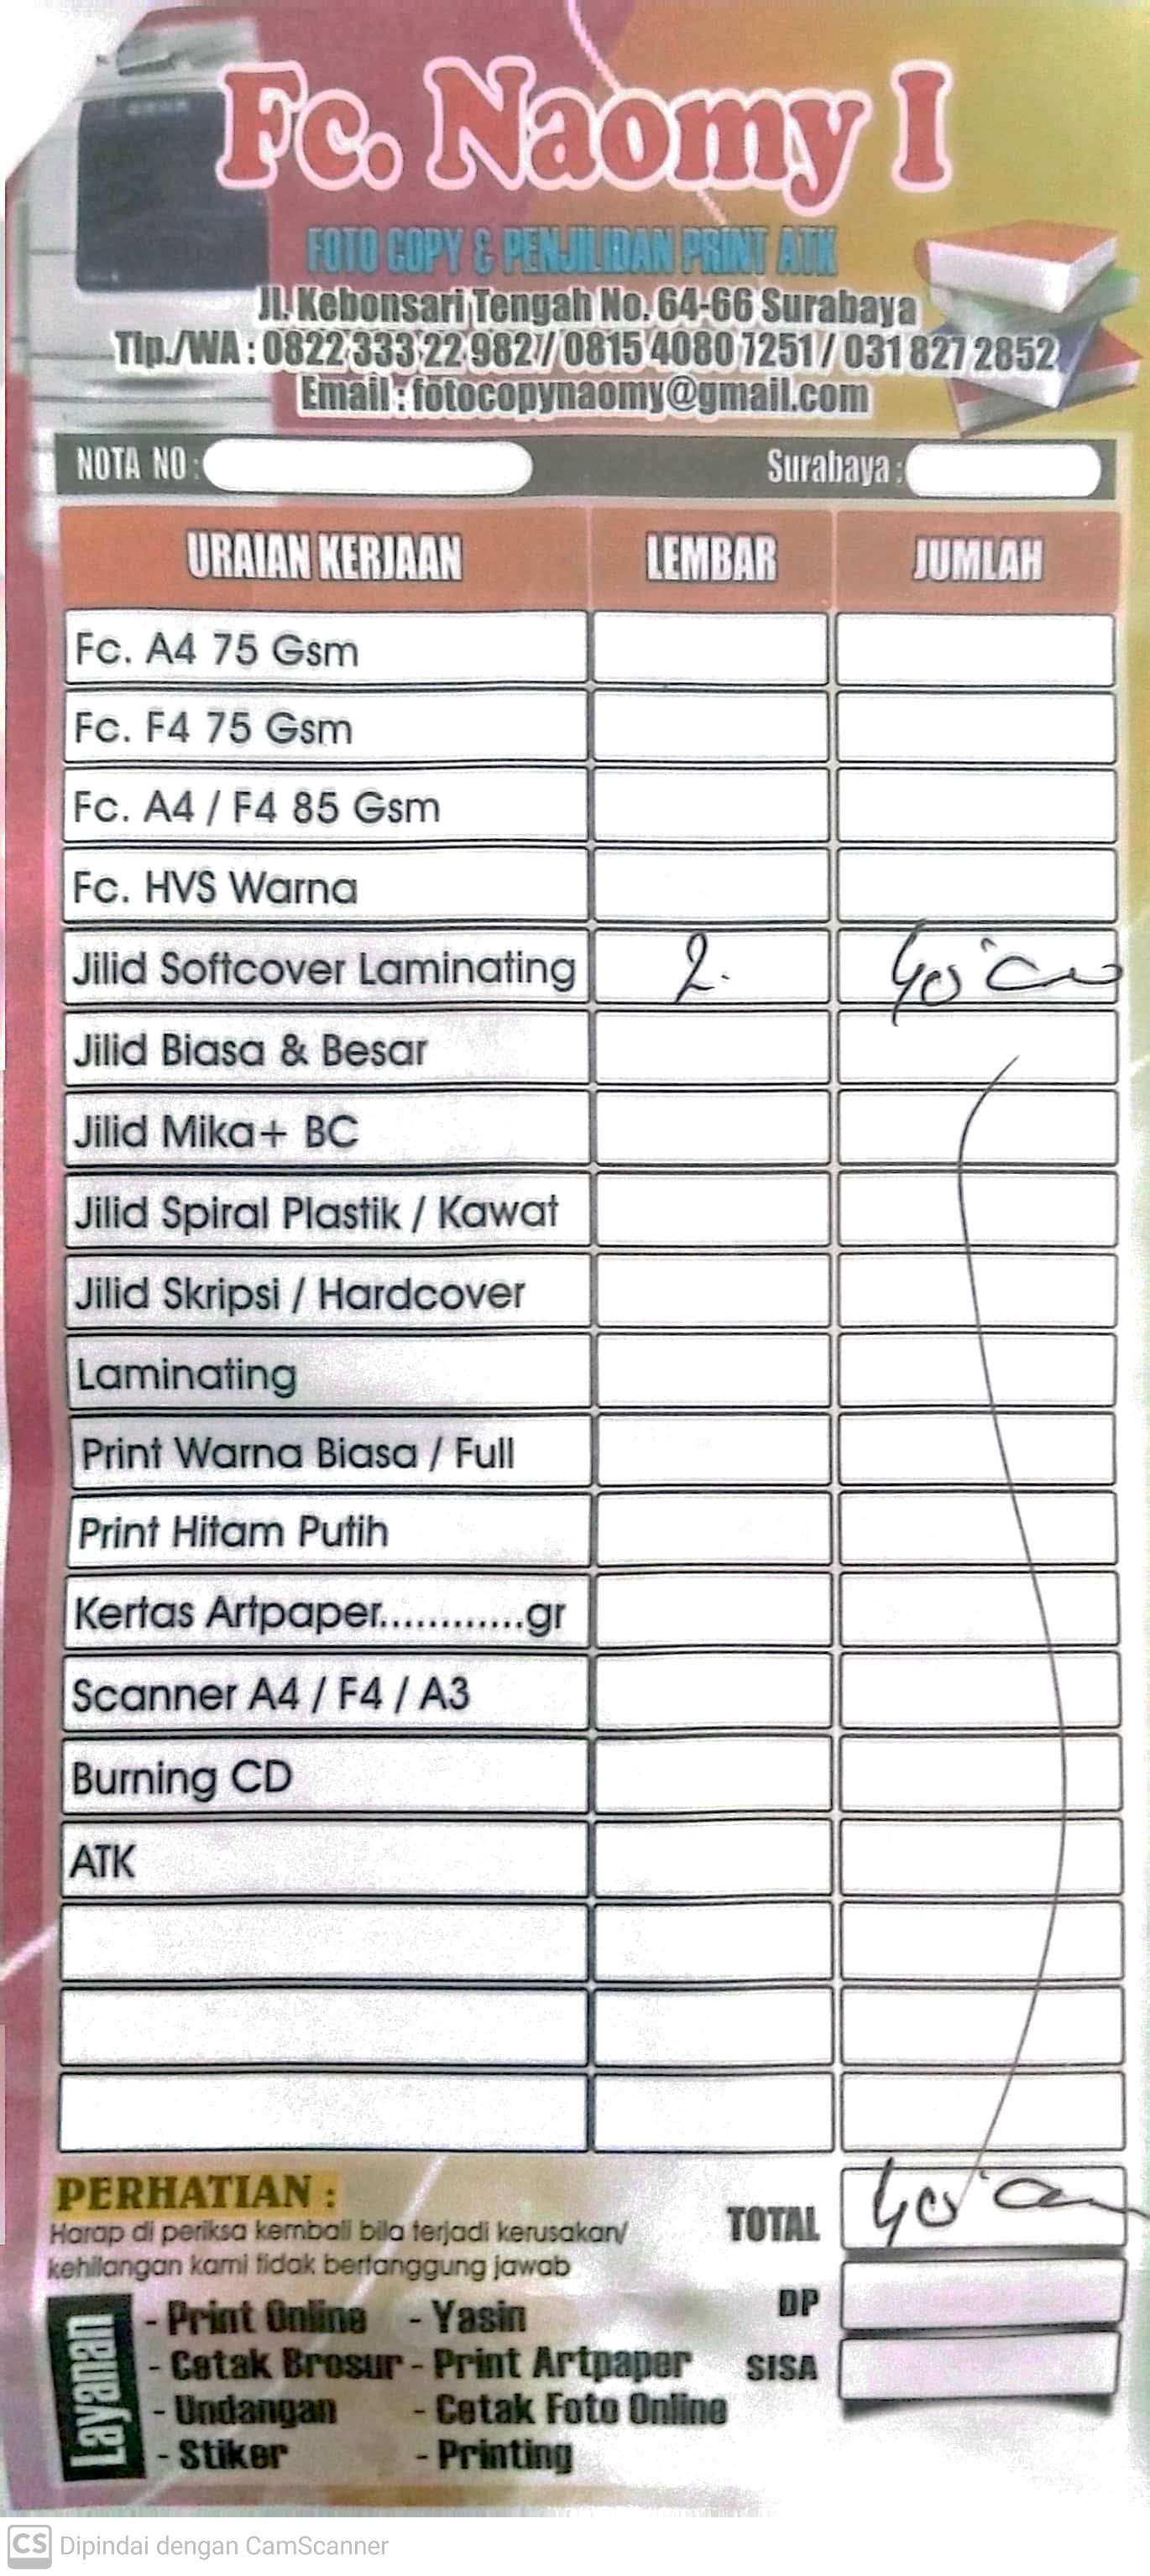 Fc. Naomy I
FOTO COPY & PENJILIDAN PRINT ATK
Jl. Kebonsari Tengah No. 64-66 Surabaya
Tlp./WA : 0822 333 22 982 / 0815 4080 7251 / 031 827 2852
Email : fotocopynaomy@gmail.com
NOTA NO : Surabaya :
URAIAN KERJAAN LEMBAR JUMLAH
Fc. A4 75 Gsm
Fc. F4 75 Gsm
Fc. A4 / F4 85 Gsm
Fc. HVS Warna
Jilid Softcover Laminating 2.
Jilid Biasa & Besar
Jilid Mika+ BC
Jilid Spiral Plastik / Kawat
Jilid Skripsi / Hardcover
Laminating
Print Warna Biasa / Full
Print Hitam Putih
Kertas Artpaper............gr
Scanner A4 / F4 / A3
Burning CD
ATK
PERHATIAN :
Harap di periksa kembali bila terjadi kerusakan/
kehilangan kami tidak bertanggung jawab
TOTAL
DP
SISA
Layanan
- Print Online - Yasin
- Cetak Brosur - Print Artpaper
- Undangan - Cetak Foto Online
- Stiker - Printing
CS Dipindai dengan CamScanner